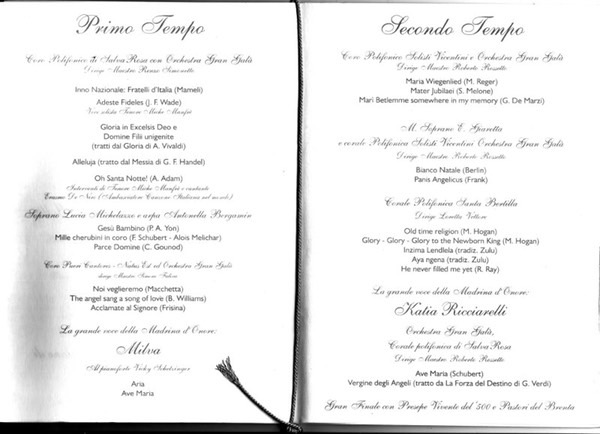 Primo Tempo
Coro Polifonico di Salva Rosa con Orchestra Gran Galà
Dirige Maestro Renzo Simonetto
Inno Nazionale: Fratelli d'Italia (Mameli)
Adeste Fideles (J. F. Wade)
Voce solista Tenore Miche Manfrè
Gloria in Excelsis Deo e
Domine Filii unigenite
(tratti dal Gloria di A. Vivaldi)
Alleluja (tratto dal Messia di G. F. Handel)
Oh Santa Notte! (A. Adam)
Interventi di Tenore Miche Manfrè e cantante
Erasmo De Nìri (Ambasciatore Canzone Italiana nel mondo)
Soprano Lucia Michelazzo e arpa Antonella Bergamin
Gesù Bambino (P. A. Yon)
Mille cherubini in coro (F. Schubert - Alois Melichar)
Parce Domine (C. Gounod)
Coro Pueri Cantores - Natus Est ed Orchestra Gran Galà
dirige Maestro Simone
Noi veglieremo (Macchetta)
The angel sang a song of love (B. Williams)
Acclamate al Signore (Frisina)
La grande voce della Madrina d'Onore:
Milva
Al pianoforte Vicky Schatzinger
Aria
Ave Maria
Secondo Tempo
Coro Polifonico Solisti Vicentini e Orchestra Gran Galà
Dirige Maestro Roberto Rossetto
Maria Wiegenlied (M. Reger)
Mater Jubilaei (S. Melone)
Marì Betlemme somewhere in my memory (G. De Marzi)
M. Soprano E. Giaretta
e corale Polifonica Solisti Vicentini Orchestra Gran Galà
Dirige Maestro Roberto Rossetto
Bianco Natale (Berlin)
Panis Angelicus (Frank)
Corale Polifonica Santa Bertilla
Dirige Loretta Vettore
Old time religion (M. Hogan)
Glory - Glory - Glory to the Newborn King (M. Hogan)
Inzima Lendlela (tradiz. Zulu)
Aya ngena (tradiz. Zulu)
He never filled me yet (R. Ray)
La grande voce della Madrina d'Onore:
Katia Ricciarelli
Orchestra Gran Galà,
Corale polifonica di Salva Rosa
Dirige Maestro Roberto Rossetto
Ave Maria (Schubert)
Vergine degli Angeli (tratto da La Forza del Destino di G. Verdi)
Gran Finale con Presepe Vivente del '500 e Pastori del Brenta